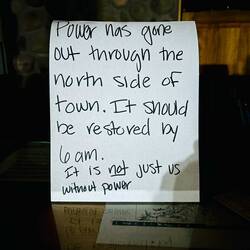 Power has gone
out through the
north side of
town. It should
be restored by
6 am.
It is not just us
without power